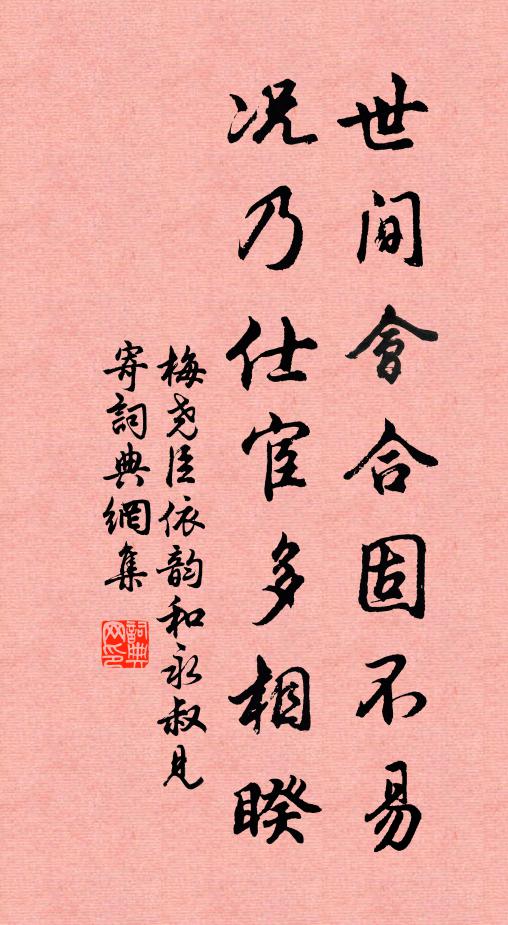 世間會合固不易
况乃仕宦多相睽
梅尧臣依韵和永叔見
寄詞典網集
詞典網印